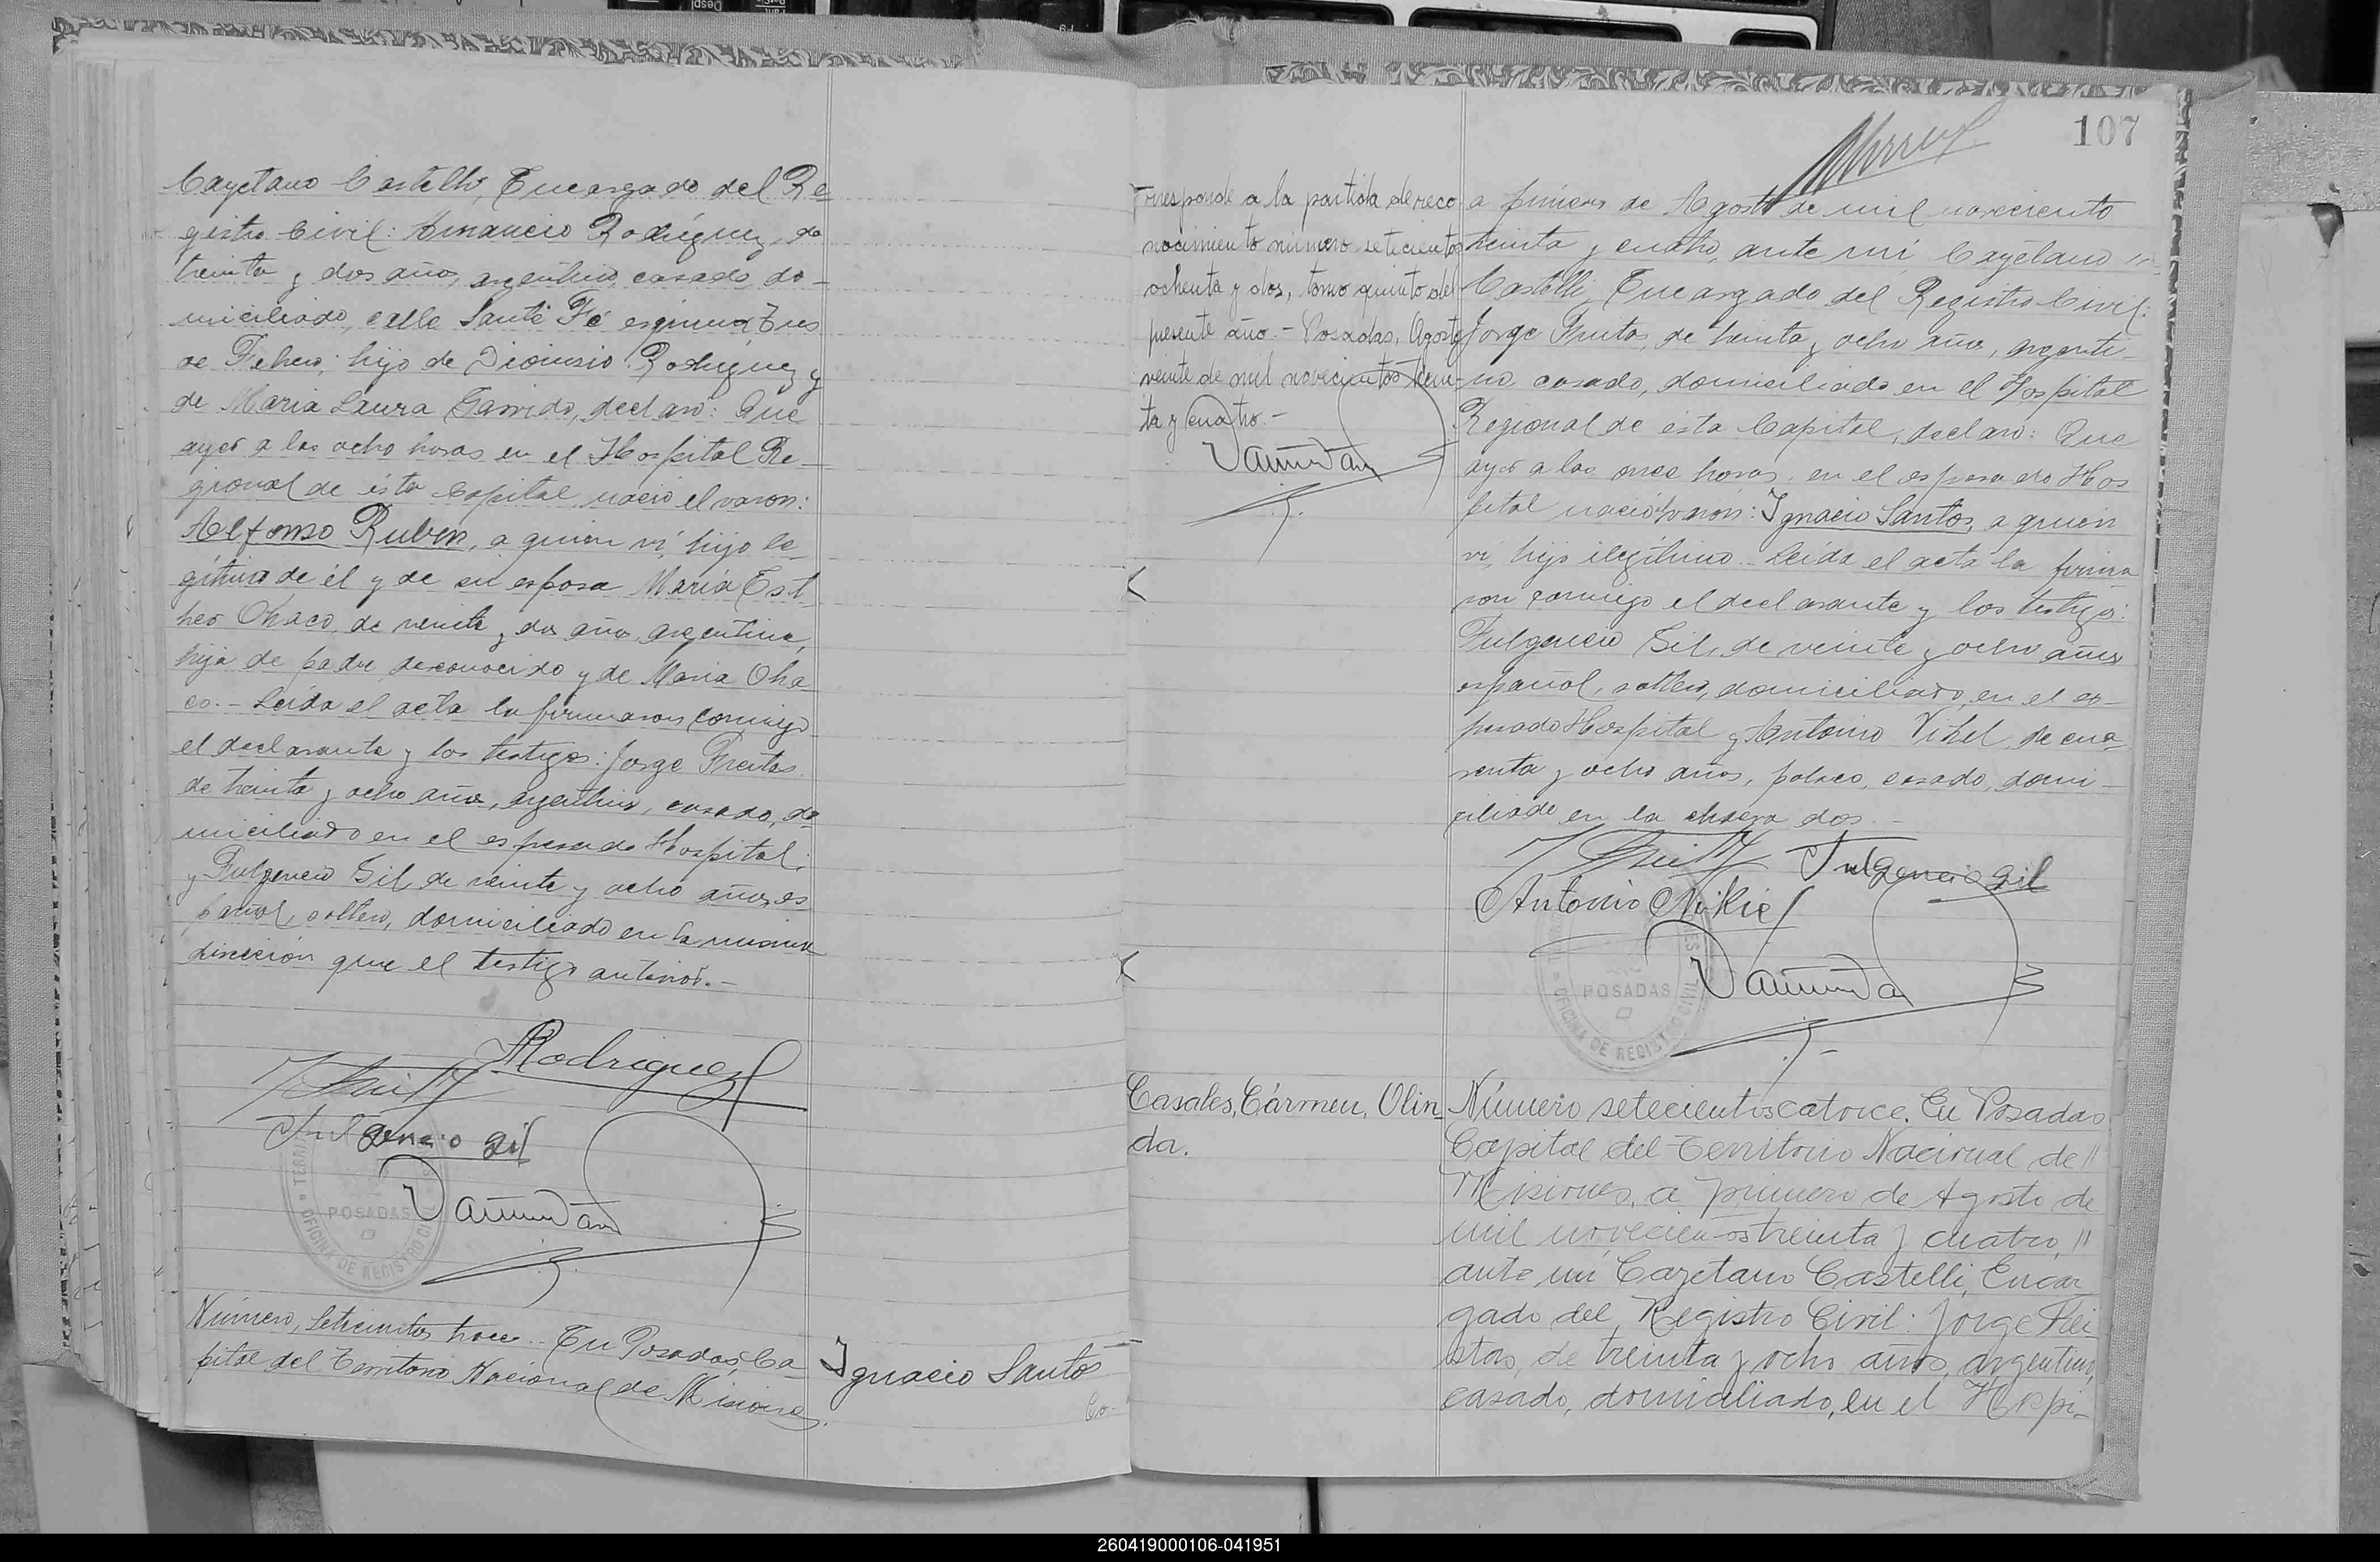 Cayetano Castelli, Encargado del Re-
gistro Civil: Amancio Rodríguez, de
treinta y dos años, argentino, casado, do-
miciliado, calle Santa Fé esquina Tres
de Febrero; hijo de Dionisio Rodríguez y
de Maria Laura Garrido, declaró: Que
ayer a las ocho horas en el Hospital Re-
gional de ésta Capital, nació el varon:
Alfonso Ruben, a quien ví, hijo le-
gítimo de él y de su esposa María Est-
her Ohaco, de veinte y dos años, argentina,
hija de padre desconocido y de Maria Oha-
co. - Leída el acta la firmaron conmigo
el declarante y los testigos: Jorge Freitas
de treinta y ocho años, argentino, casado, do-
miciliado en el espresado Hospital,
y Fulgencio Gil, de veinte y ocho años, es-
pañol, soltero, domiciliado en la misma
dirección que el testigo anterior. -
Rodriguez
Fulgencio Gil
POSADAS
OFICINA DE REGISTRO CIVIL
Número, setecientos trece. - En Posadas, Ca-
pital del Territorio Nacional de Misiones,
Ignacio Santos
Co-
107
rresponde a la partida de reco
nocimiento número setecientos
ochenta y dos, tomo quinto del
presente año. - Posadas, Agosto
veinte de mil novecientos trein-
ta y cuatro. -
a primero de Agosto de mil novecientos
treinta y cuatro, ante mí Cayetano
Castelli, Encargado del Registro Civil:
Jorge Freitas, de treinta y ocho años, argenti-
no, casado, domiciliado en el Hospital
Regional de ésta Capital, declaró: Que
ayer a las once horas, en el espresado Hos
pital nació varón: Ignacio Santos, a quien
ví, hijo ilegítimo. - Leída el acta la firma
ron conmigo el declarante y los testigos:
Fulgencio Gil, de veinte y ocho años
español, soltero, domiciliado, en el es-
presado Hospital y Antonio Vikel, de cua-
renta y ocho años, polaco, casado, domi-
ciliado en la chacra dos. -
Fulgencio Gil
Antonio Nikiel
POSADAS
OFICINA DE REGISTRO CIVIL
Casales, Cármen, Olin-
da.
Número setecientos catorce. En Posadas
Capital del Territorio Nacional de "
Misiones, a primero de Agosto de
mil novecientos treinta y cuatro, "
ante mí Cayetano Castelli, Encar
gado del Registro Civil: Jorge Frei
tas, de treinta y ocho años, argentino,
casado, domiciliado, en el Hospi-
260419000106-041951